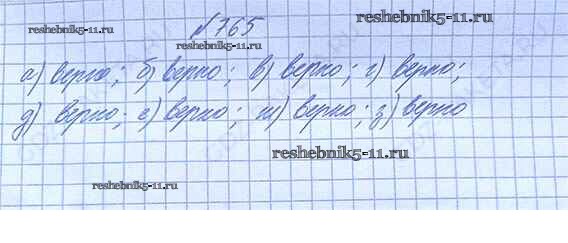 reshebnik5-11.ru
№ 765
reshebnik5-11.ru
reshebnik5-11.ru
а) верно; б) верно; в) верно; г) верно;
д) верно; е) верно; ж) верно; з) верно
reshebnik5-11.ru
reshebnik5-11.ru